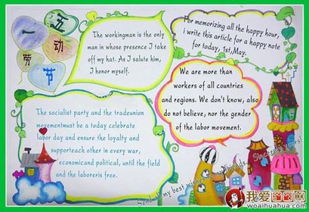 五一
劳动
节
The workingman is the only
man in whose presence I take
off my hat. As I salute him,
I honor myself.
For memorizing all the happy hour,
i write this article for a happy note
for today, 1st,May.
We are more than
workers of all countries
and regions. We don't know, also
do not believe, nor the gender
of the labor movement.
The socialist party and the tradeunion
movementmust be a today celebrate
labor day and ensure the loyalty and
supporteach other in every war,
economicand political, until the field
and the laboreris free.
my best
我爱画画网
woaihuahua.com